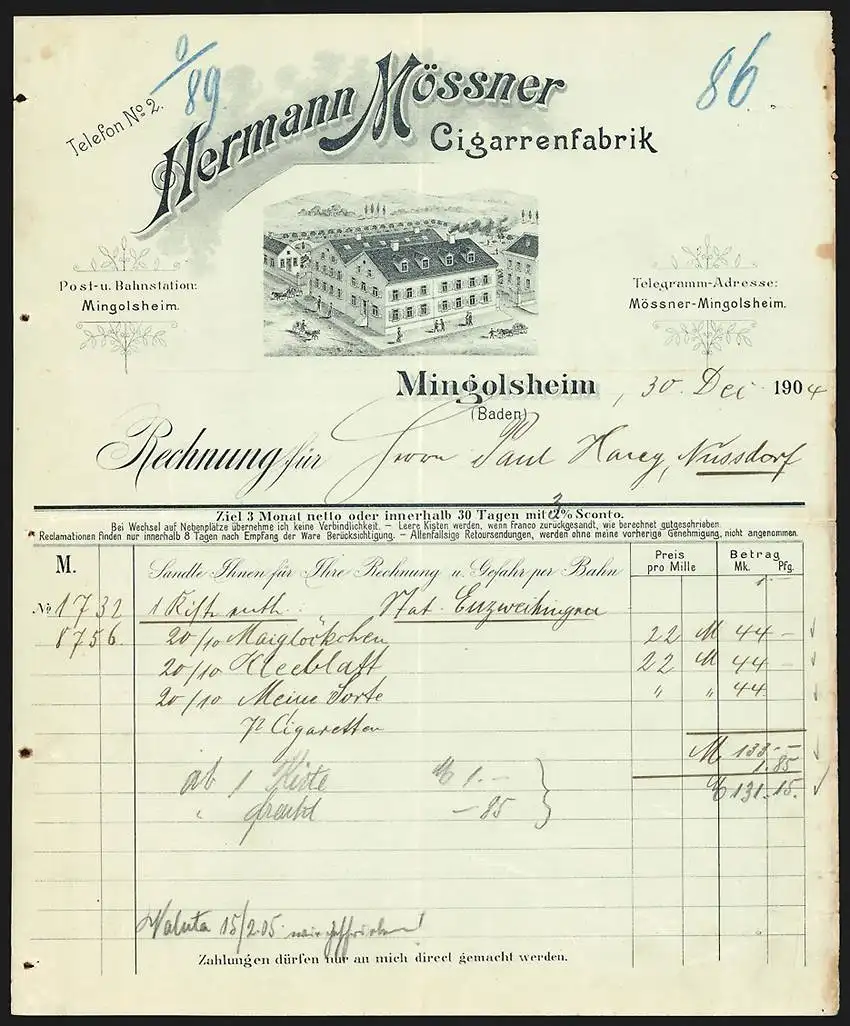 0/89
86
Telefon No 2.
Hermann Mössner
Cigarrenfabrik
Post- u. Bahnstation:
Mingolsheim.
Telegramm-Adresse:
Mössner-Mingolsheim.
Mingolsheim, 30. Dec. 1904
(Baden)
Rechnung für Herrn Paul Harey, Nussdorf
Ziel 3 Monat netto oder innerhalb 30 Tagen mit 3% Sconto.
Bei Wechsel auf Nebenplätze übernehme ich keine Verbindlichkeit. – Leere Kisten werden, wenn franco zurückgesandt, wie berechnet gutgeschrieben.
Reclamationen finden nur innerhalb 8 Tagen nach Empfang der Ware Berücksichtigung. – Allenfallsige Retoursendungen, werden ohne meine vorherige Genehmigung, nicht angenommen.
M. Sandte Ihnen für Ihre Rechnung u. Gefahr per Bahn Preis pro Mille Betrag Mk. Pfg.
No 1732 1 Kiste enth: Stat. Enzweihingen
8756. 20/10 Maiglöckchen 22 M 44 –
20/10 Kleeblatt 22 M 44 –
20/10 Meine Sorte " " 44
Cigaretten
M 133.–
1.85
M 131.15.
ab 1 Kiste M 1.–
" – 85
Valuta 15/2.05
Zahlungen dürfen nur an mich direct gemacht werden.